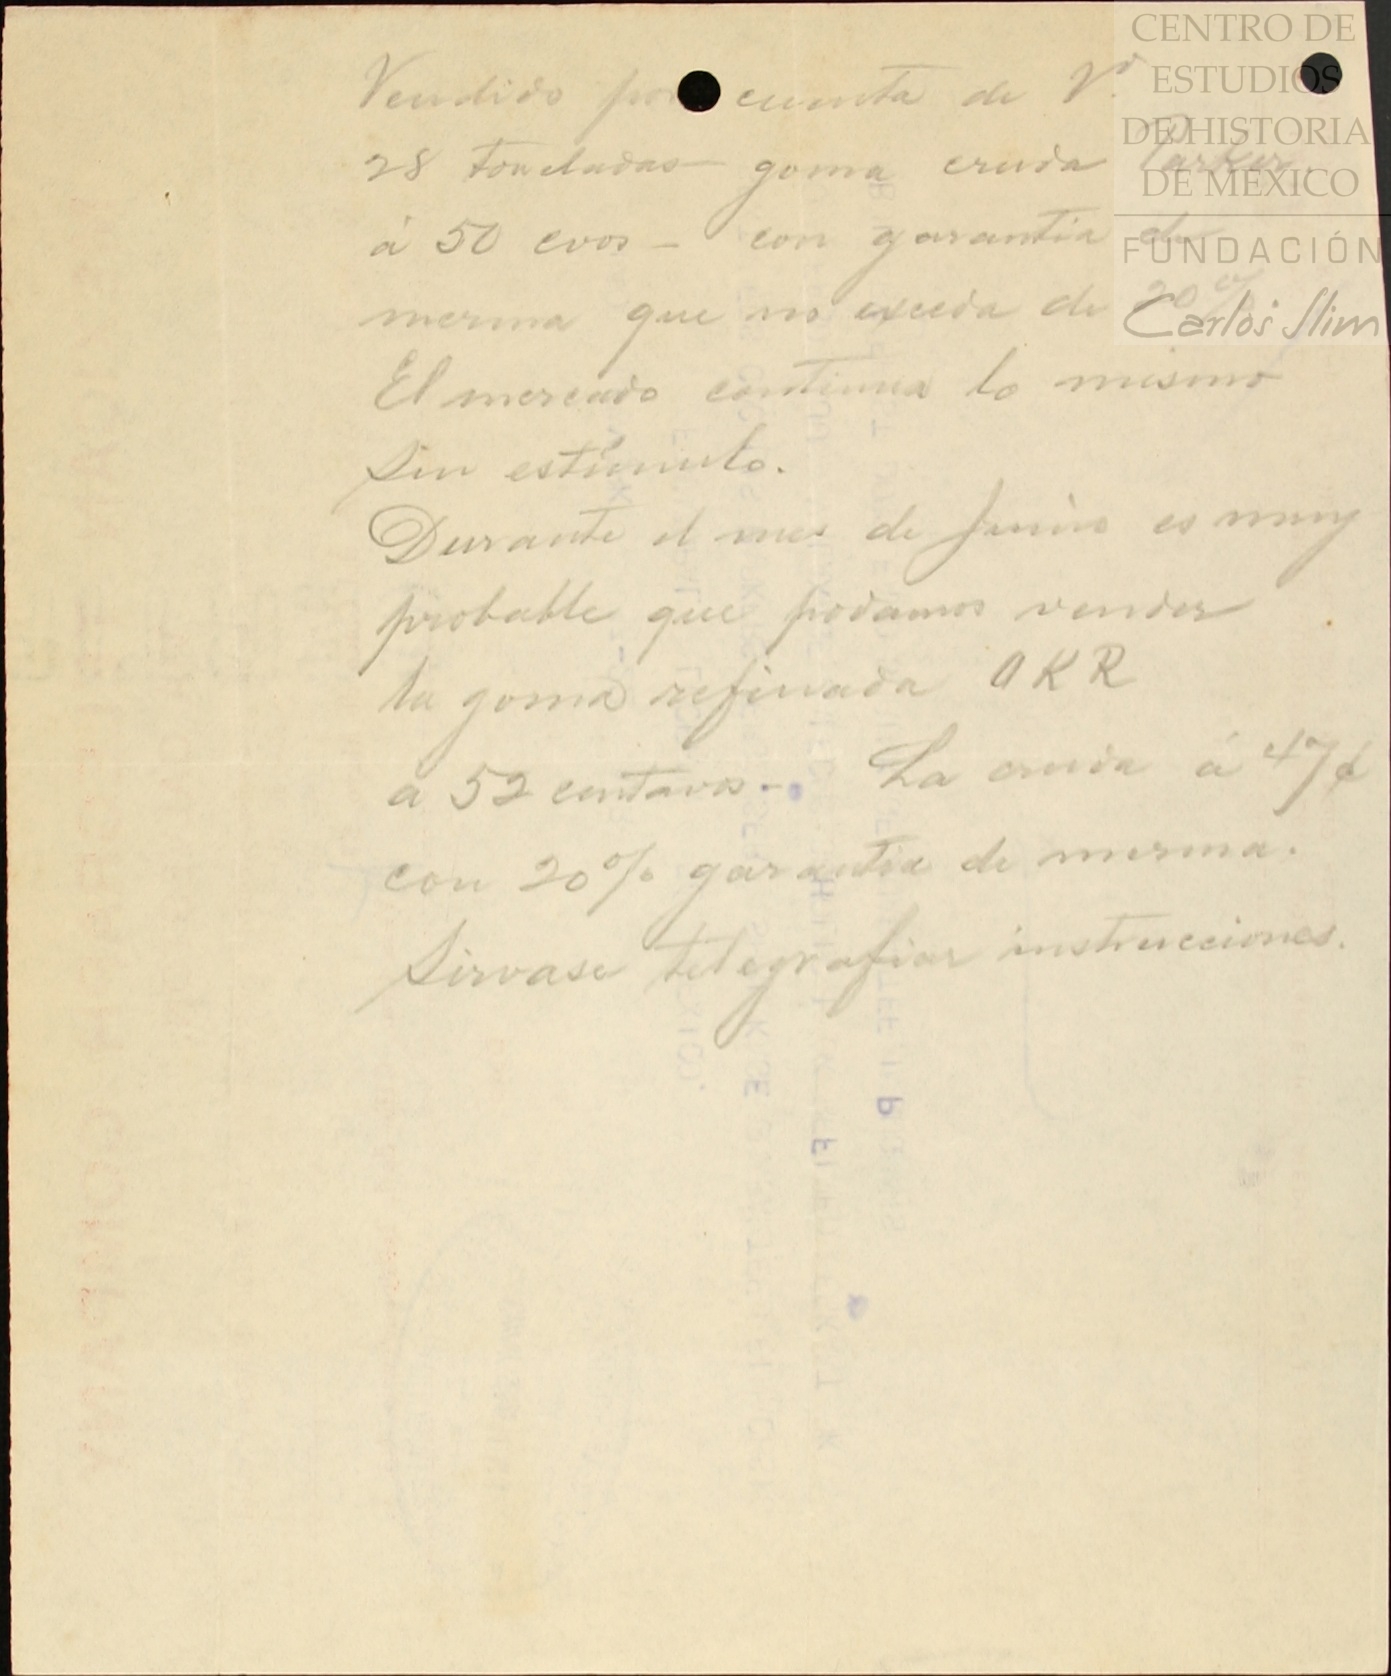 CENTRO DE
ESTUDIOS
DE HISTORIA
DE MÉXICO
FUNDACIÓN
Carlos Slim
Vendido por cuenta de Vd.
28 toneladas goma cruda Parker,
á 50 cvos - con garantia de
merma que no exceda de 20%
El mercado continua lo mismo
sin estímulo.
Durante el mes de Junio es muy
probable que podamos vender
la goma refinada AKR
a 52 centavos - La cruda á 47¢
con 20% garantia de merma.
Sirvase telegrafiar instrucciones.